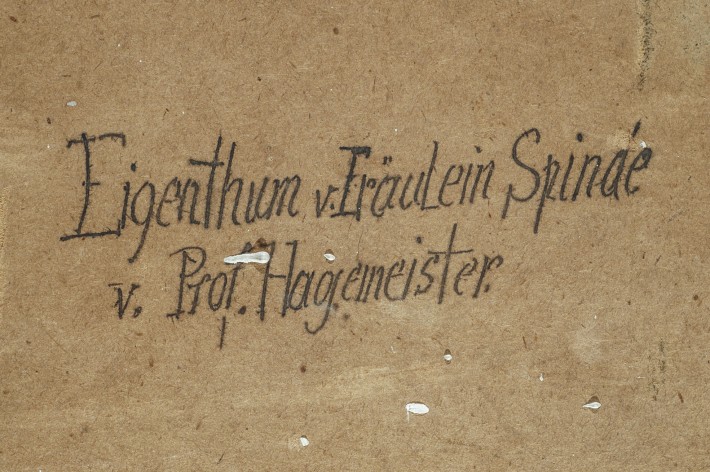 Eigenthum v. Fräulein Spindé
v. Prof. Hagemeister.